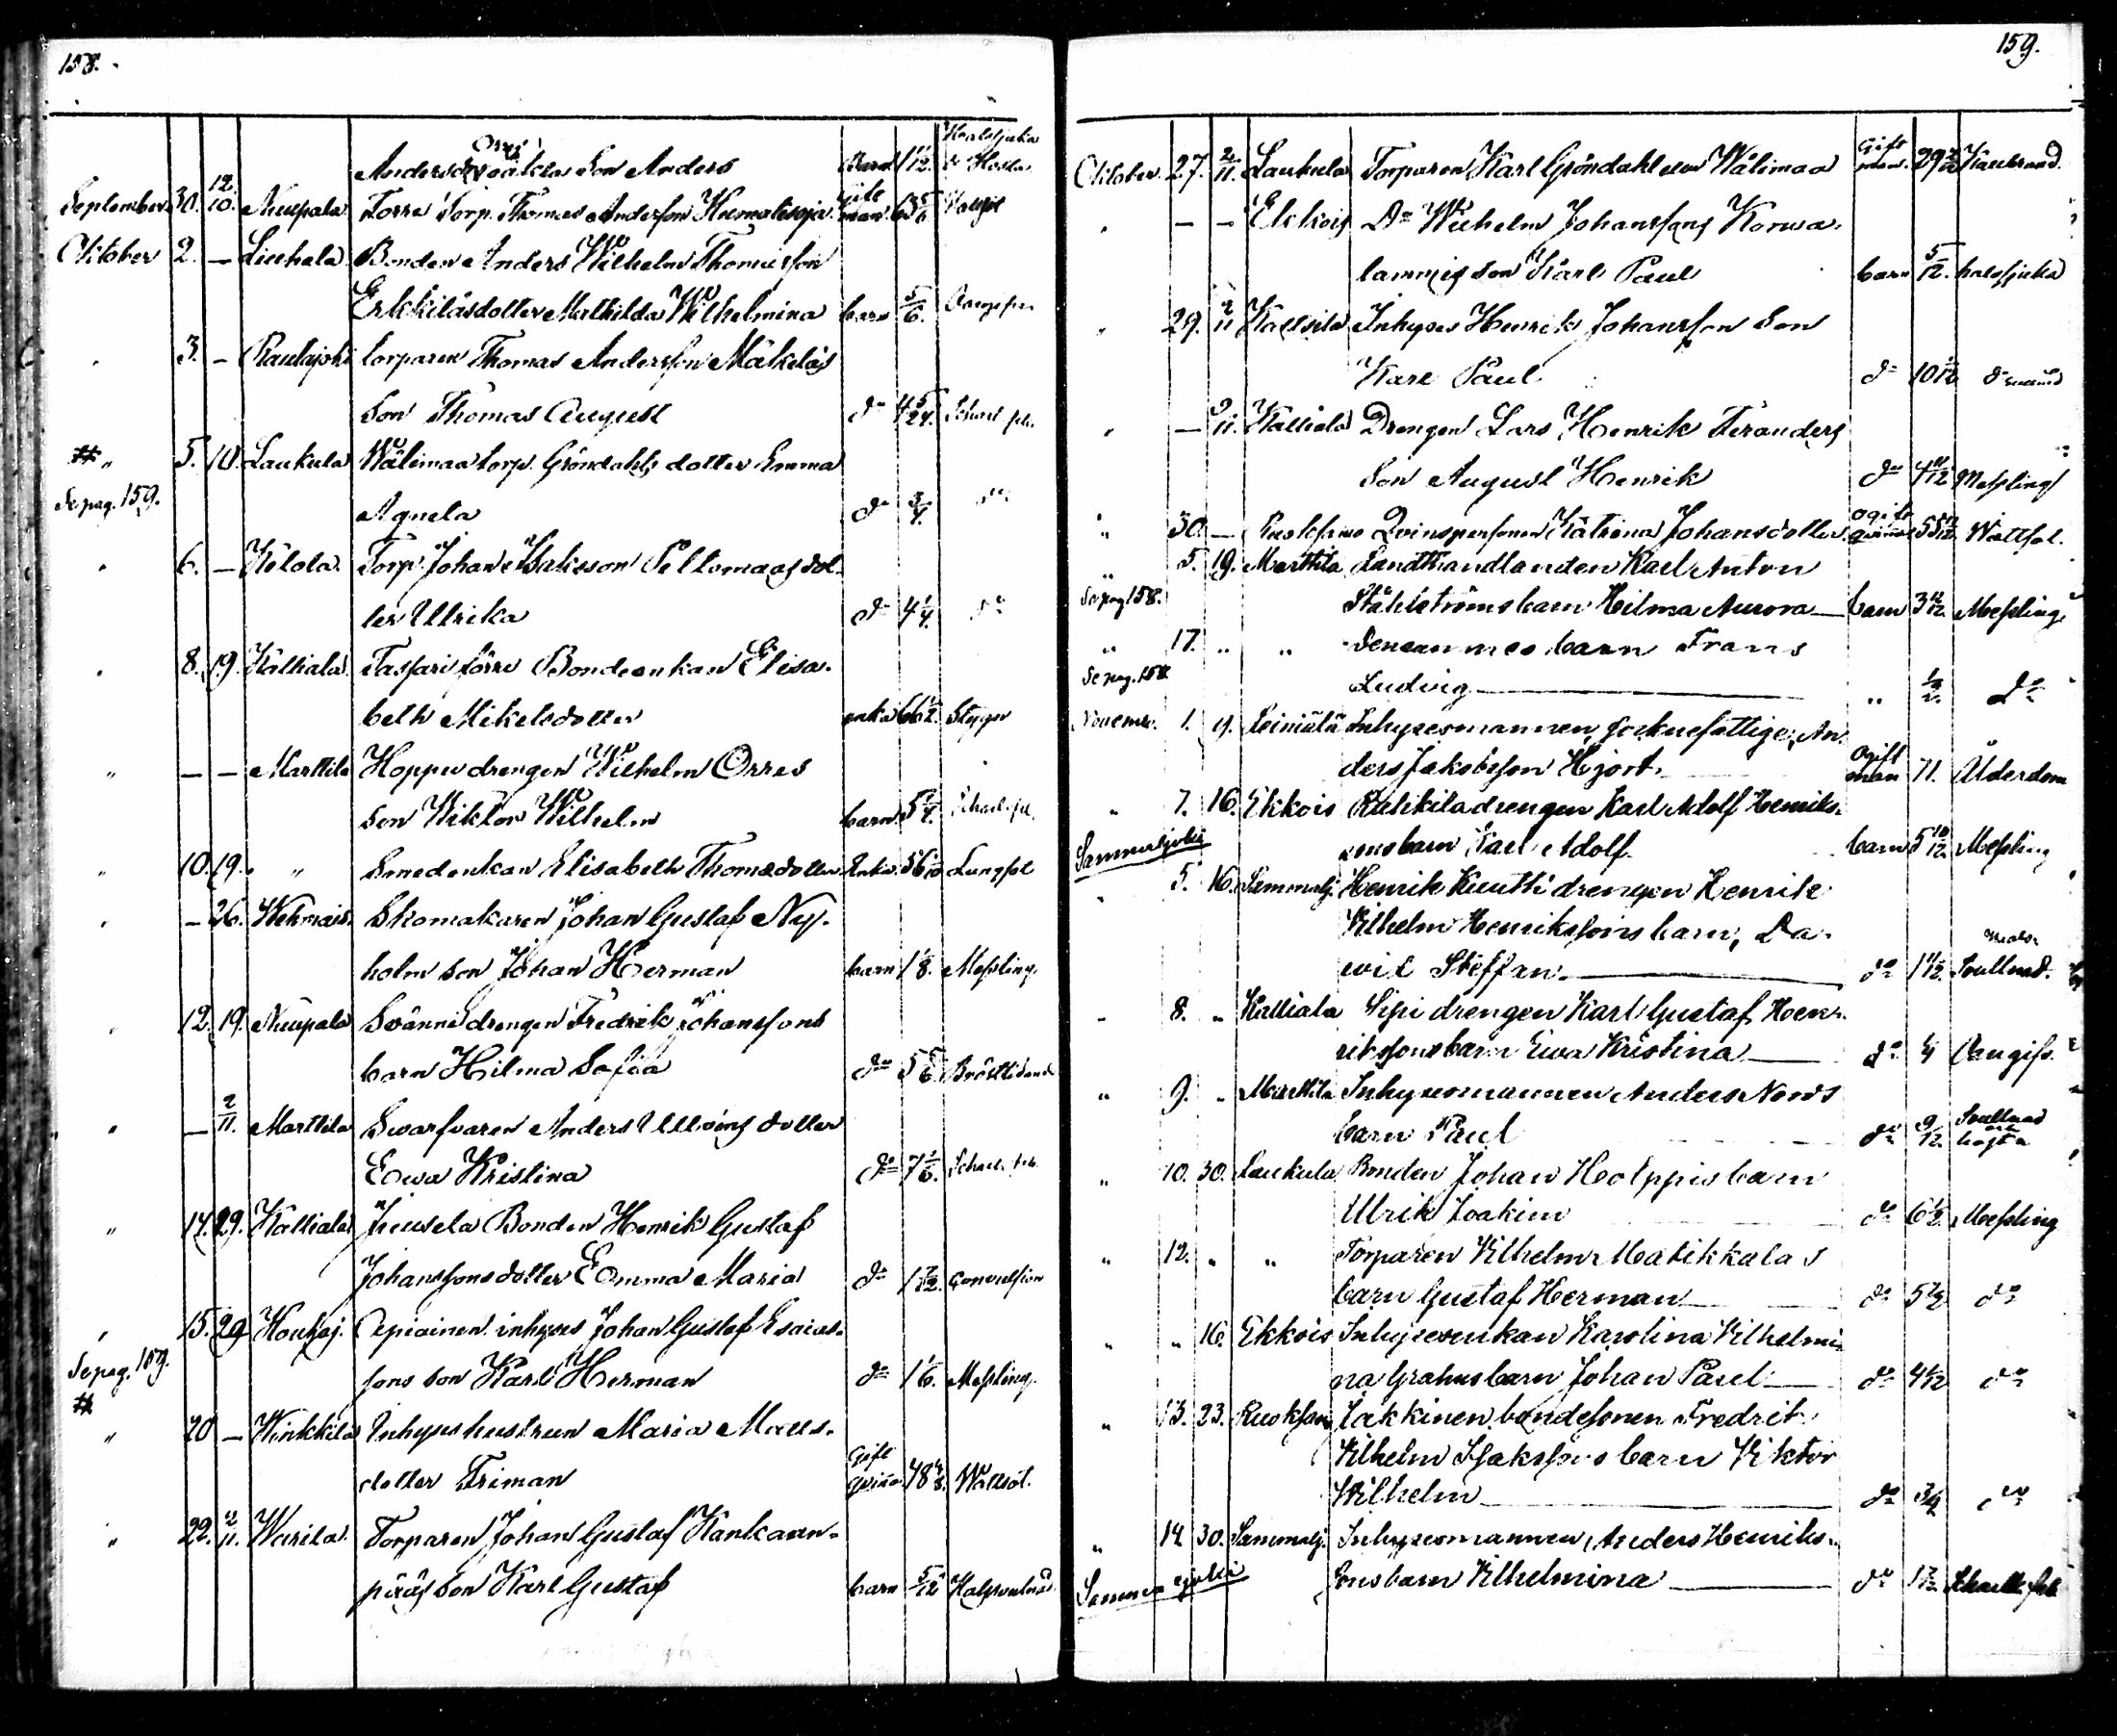 158.
Halssjuka
Anders Orres enkas Son Anders Barn 1 1/12 & Hosta
September 30. 12/10. Nuupala Torra Torp. Thomas Andersson Kuomatisoja Gift man 63 5/6 Håll
October 2. — Liuhala Bonden Anders Wilhelm Thomasson
Erkkiläs dotter Mathilda Wilhelmina barn 5/6. Oangifven
" 3. — Rautajoki torparen Thomas Andersson Mäkeläs
Son Thomas August do 4 5/24. Scharl. feb.
# " 5. 10. Laukula Wälimaa torp. Gröndahls dotter Emma
Se pag. 159.
Agneta do 3/4. do
" 6. — Kölola Torp. Johan Isaksson Peltomaas dot-
ter Ullrika do 4 1/4. do
" 8. 19. Kalliala Taspari förra Bondeenkan Elisa-
beth Mikelsdotter enka 66 1/2. Stygn
" — — Marttila Hoppu drengen Wilhelm Orres
Son Wiktor Wilhelm barn 5 1/4. Scharl. feb.
" 10. 19. " Smedenkan Elisabeth Thomasdotter Enka 56 Lungsot
" — 26. Wehmais. Skomakaren Johan Gustaf Ny-
holm son Johan Herman barn 1/8. Messling.
" 12. 19. Nuupala Swänni drengen Fredrik Johanssons
barn Hilma Sofia do 5 5/6 Bröstlidande
" — 2/11. Marttila Swarfvaren Anders Ullvins dotter
Ewa Kristina do 7 1/6. Scharl. feb.
" 14. 29. Kalliala Jussila Bonden Henrik Gustaf
Johanssons dotter Emma Maria do 1 7/12. Convulsion
" 15. 29 Houhaj. Apiainen inhyses Johan Gustaf Esaias-
Se pag. 159.
sons son Karl Herman do 1/6. Messling.
#
" 20 — Winkkila Inhyses hustrun Maria Matts-
dotter Friman Gift qvina 48 Wattsot.
" 22. 2/11. Warila Torparen Johan Gustaf Kankaan-
pääs son Karl Gustaf barn 5/12 Halssvullnad
159.
October. 27. 2/11. Laukula Torparen Karl Gröndahl eller Wälimaa Gift man. 29 Kallbrand.
" — — Ekkois Do Wilhelm Johanssons Korwa-
lammis son Karl Paul barn 5/12. halssjuka
" 29. 2/11 Kaltsila Inhyses Henrik Johansson Son
Karl Paul do 10 1/12 Okänd
" — 2/11. Kalliala Drengen Lars Henrik Teranders
Son August Henrik do 4 11/12 Messling
" 30. — Qvinspersonen Katrina Johansdotter Ogift qvina 55 Wattsot.
" 5. 19. Marttila Landthandlanden Karl Anton
Se pag 158. Ståhlströms barn Hilma Aurora barn 3 Messling
" 17. " " Densammes barn Frans
Se pag. 158 Ludvig " 1/2. do
November. 1. 9. Leiniälä Inhysesmannen, socknefattige, An-
ders Jakobsson Hjort. Ogift man 71. Ålderdom
" 7. 16. Ekkois Rahkila drengen Karl Adolf Henriks-
sons barn Karl Adolf. barn 5 10/12 Messling
Sammaljoki
" 5. 16. Sammalj. Henrik Kuuthi drengen Henrik
Vilhelm Henrikssons barn, Da-
vid Steffan. do 1 1/2 Hals-svullnad.
" 8. " Kalliala Sipi drengen Karl Gustaf Hen-
rikssons barn Ewa Kristina do 1/4 Oangifv.
" 9. " Marttila Inhysesmannen Anders Nords
barn Paul do 9/12 Svullnad och hosta
" 10. 30. Laukula Bonden Johan Holppis barn
Ulrik Joakim do 6 1/2. Messling
" 12. " " Torparen Vilhelm Matikkalas
barn Gustaf Herman do 5 1/2 do
" " 16. Ekkois Inhysesenkan Karolina Vilhelmi-
na Grahns barn Johan Paul do 4 1/2 do
" 13. 23. Ruoksam. Jakkinen, bondesonen Fredrik
Vilhelm Isakssons barn Viktor
Wilhelm do 3/4 do
" 14 30. Sammalj. Inhysesmannen, Anders Henriks-
Sammaljoki sons barn Vilhelmina do 1 1/2 Scharlk. feb